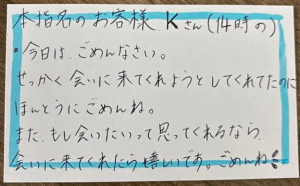 本指名のお客様 Kさん(14時の)
・今日は、ごめんなさい。
せっかく会いに来てくれようとしてくれてたのに
ほんとうにごめんね。
また、もし会いたいって思ってくれるなら、
会いに来てくれたら嬉しいです。ごめんね